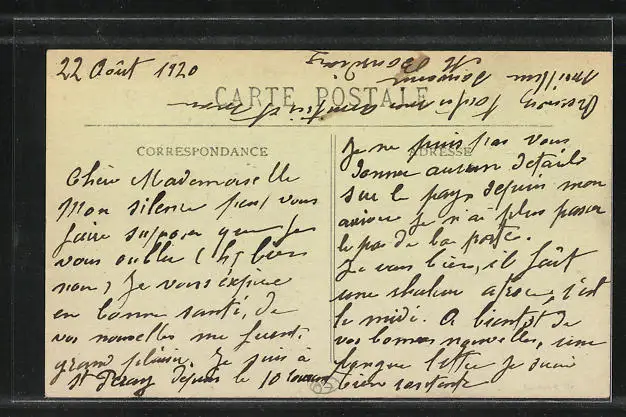 22 Août 1920
CARTE POSTALE
CORRESPONDANCE
Chère Mademoiselle
Mon silence peut vous
faire supposer que je
vous oublie (Eh bien
non) Je vous espère
en bonne santé, de
vos nouvelles me feront
grand plaisir. Je suis à
St Peray depuis le 10 courant
ADRESSE
Je ne puis pas vous
donner aucun détail
sur le pays depuis mon
arrivée je n'ai plus passer
le pas de la porte.
Je vais bien, il fait
une chaleur atroce, c'est
le midi. A bientôt de
vos bonnes nouvelles, une
longue lettre je serai
bien contente